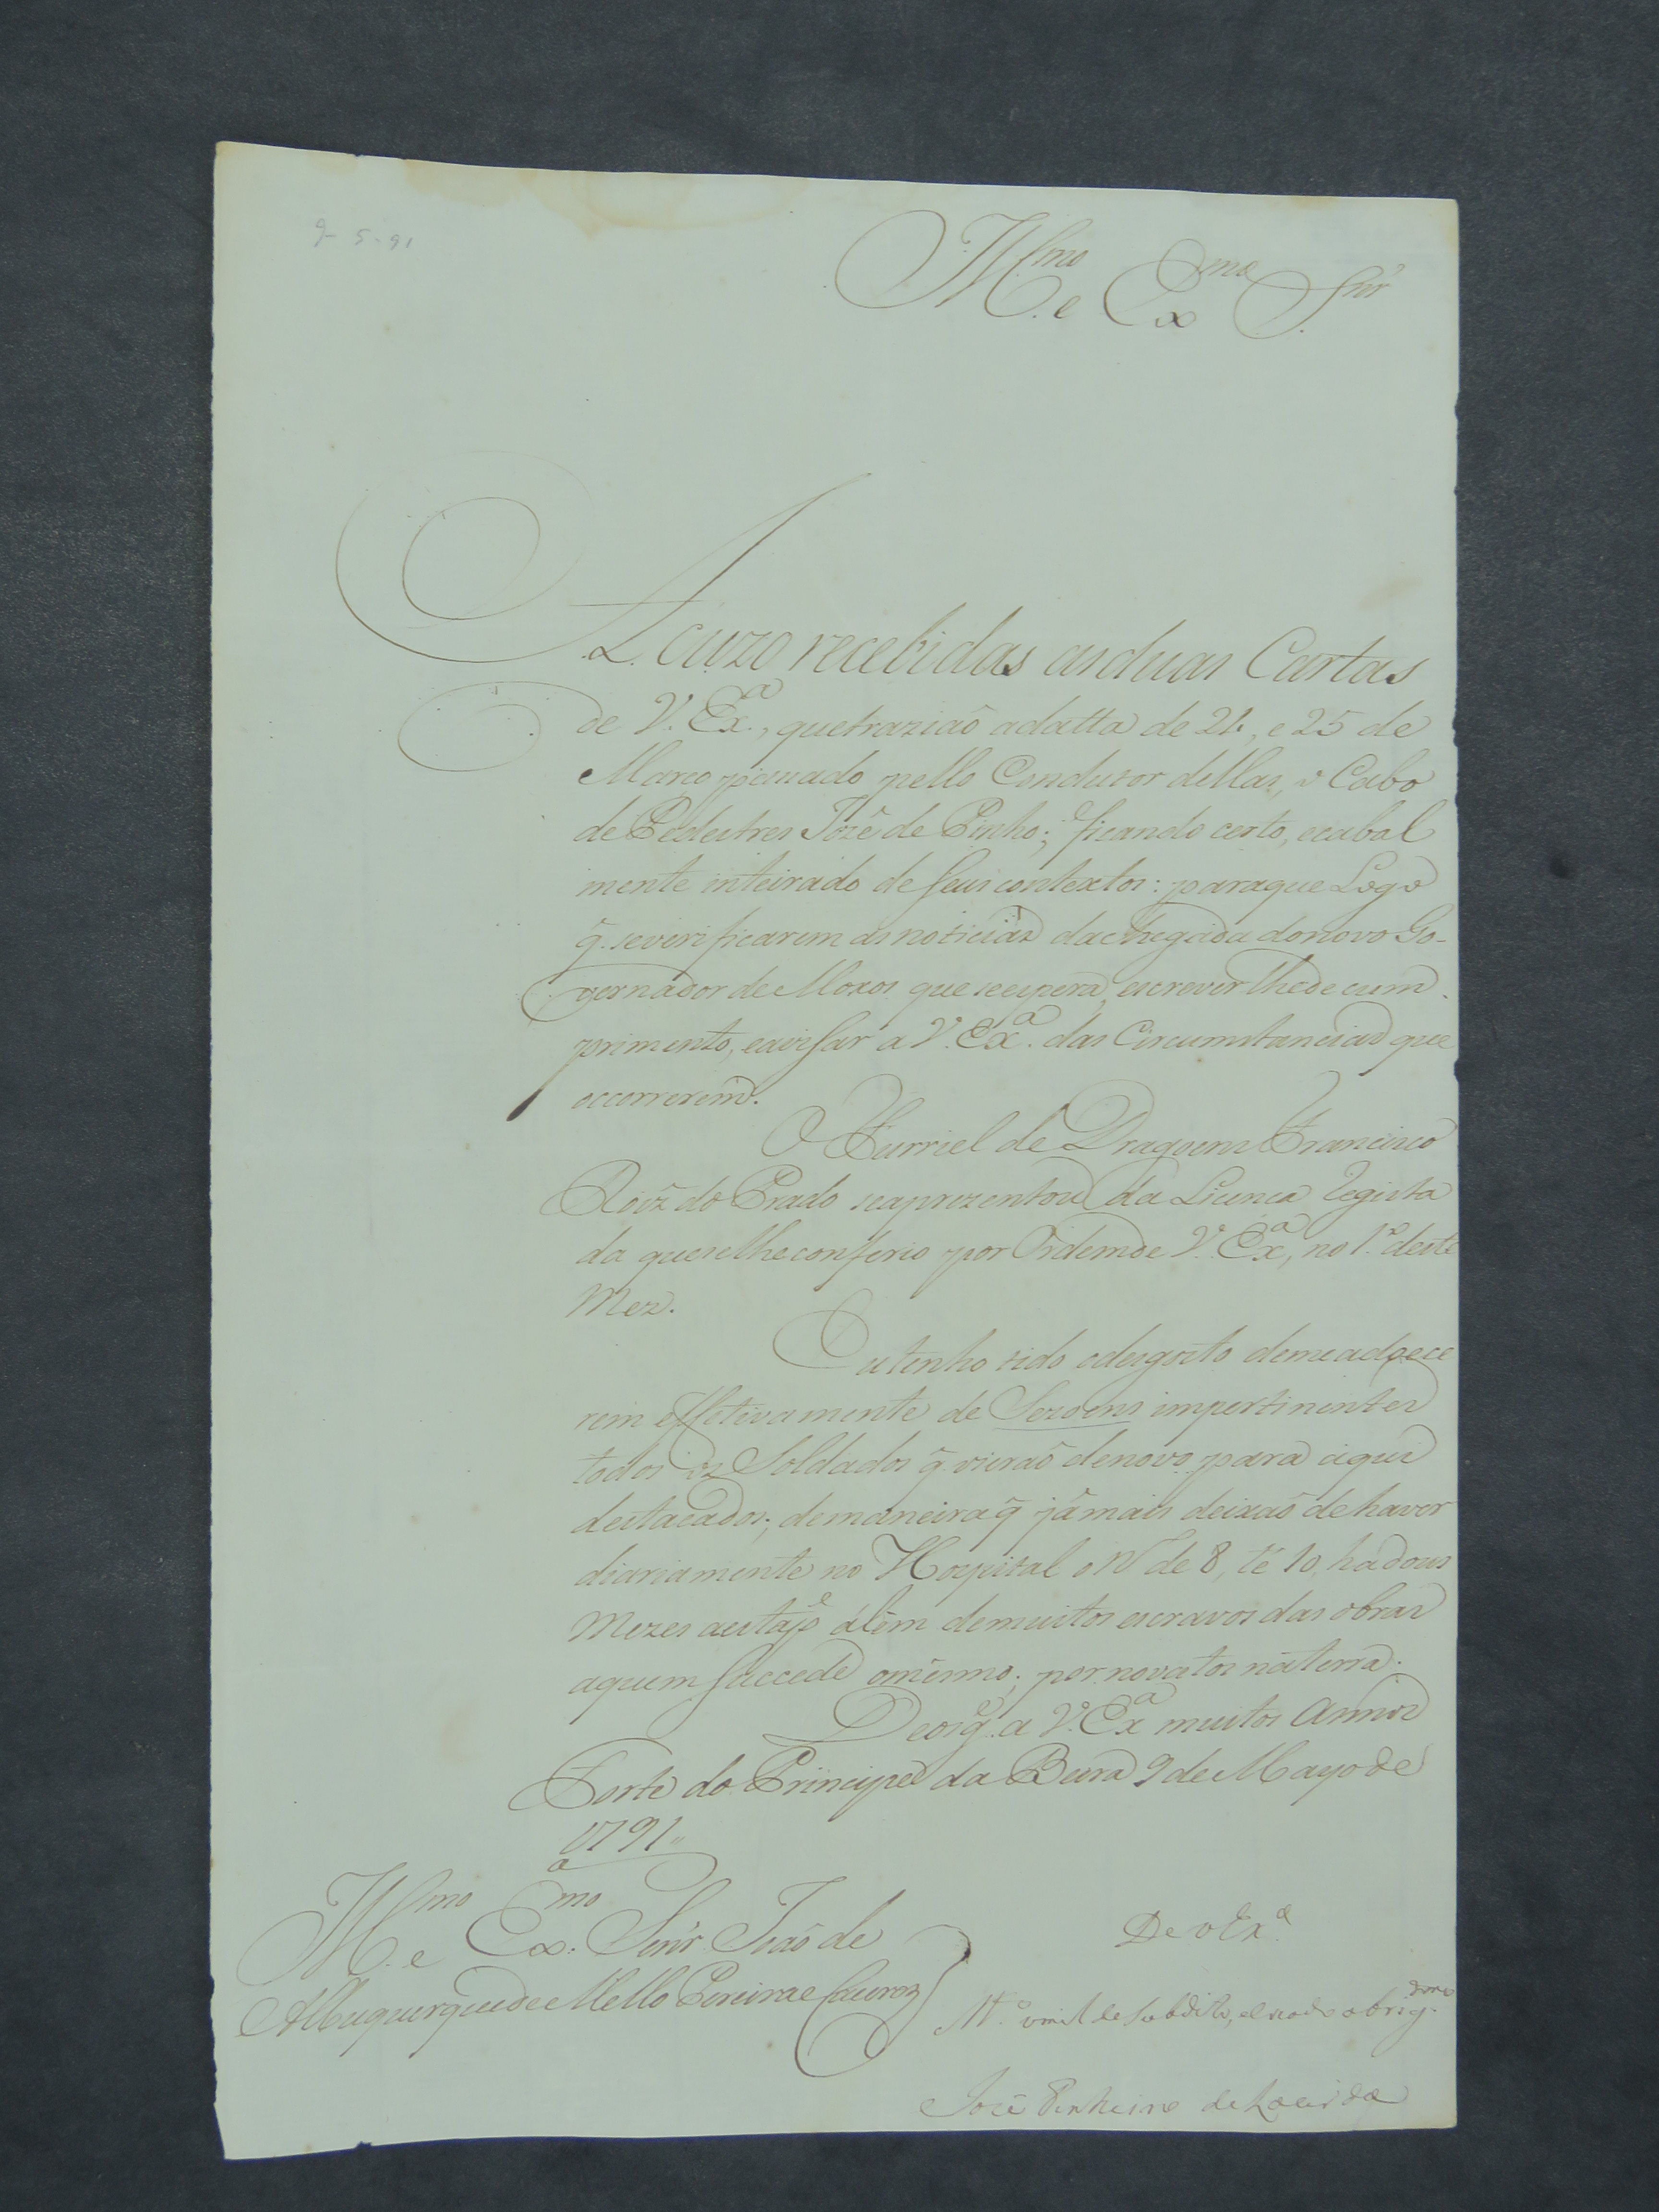 9-5-91
Ill.mo e Ex.mo Snr̃
Acuzo recebidas as duas Cartas
de V. Ex.a, que traziaõ a datta de 24, e 25 de
Março passado pello Condutor dellas, o Cabo
de Pedestres Jozê de Pinho; ficando certo, e cabal
mente inteirado de seus contextos: para que Logo
q̃. se verificarem as noticias da chegada do novo Go-
vernador de Moxos que se espera, escrever lhe de cum
primento, e avisar a V. Ex.a das Circumstancias que
occorrerem.
O Furriel de Dragoens Francisco
Roiz̃ do Prado se aprezentou da Licença Regista
da que se lhe conferio por Ordem de V. Ex.a, no 1.o deste
Mez.
Eu tenho tido o desgosto de me adoece
rem effetivamente de Sezoens impertinentes
todos os Soldados q̃ vieraõ de novo para aqui
destacados; de maneira q̃ já mais deixaõ de haver
diariamente no Hospital o N.o de 8, té 10, ha dous
Mezes a esta p.e além de muitos escravos das obras
a quem succede o mesmo; por novatos na terra.
Deos g.e a V. Ex.a muitos Annos
Forte do Principe da Beira 9 de Mayo de
1791
Ill.mo e Ex.mo Senr̃ Joaõ de
Albuquerque de Mello Pereira e Caceres
De V Ex.a
M.o umilde Subdito, e criado obrig.dmo
Jozê Pinheiro de Lacerda